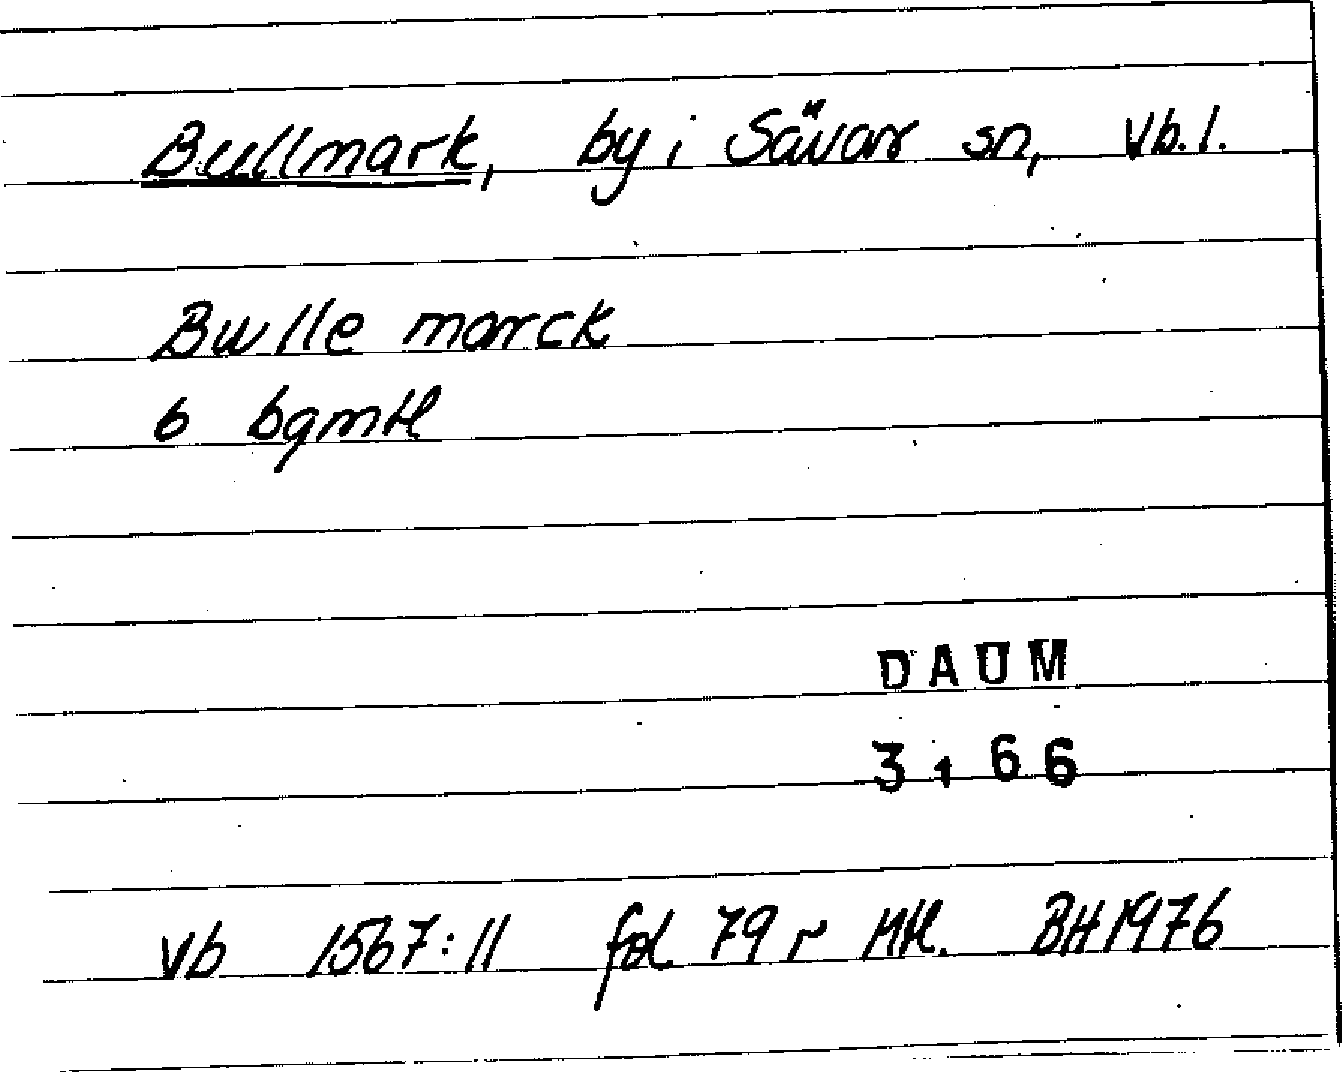 Bullmark, by i Sävar sn, Vb. l.
Bwlle marck
6 bgmtl
DAUM
3166
Vb 1567:11 fol 79 r Mtl. BH 1976